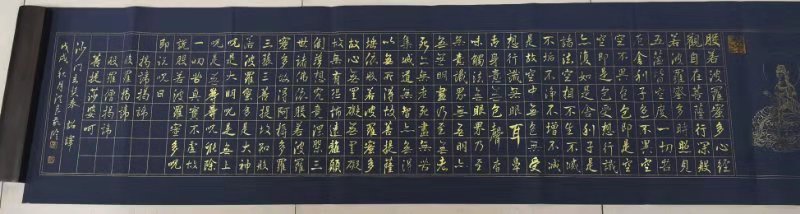 般若波羅蜜多心經
觀自在菩薩行深般
若波羅蜜多時照見
五蘊皆空度一切苦
厄舍利子色不異空
空不異色色即是空
空即是色受想行識
亦復如是舍利子是
諸法空相不生不滅
不垢不淨不增不減
是故空中無色無受
想行識無眼耳鼻
舌身意無色聲香
味觸法無眼界乃至
無意識界無無明亦
無無明盡乃至無老
死亦無老死盡無苦
集滅道無智亦無得
以無所得故菩提薩
埵依般若波羅蜜多
故心無罣礙無罣礙
故無有恐怖遠離顛
倒夢想究竟涅槃三
世諸佛依般若波羅
蜜多故得阿耨多羅
三藐三菩提故知般
若波羅蜜多是大神
咒是大明咒是無上
咒是無等等咒能除
一切苦真實不虛故
說般若波羅蜜多咒
即說咒曰
揭諦揭諦
般羅揭諦
般羅僧揭諦
菩提莎婆呵
沙門玄奘奉 詔譯
戊戌秋月